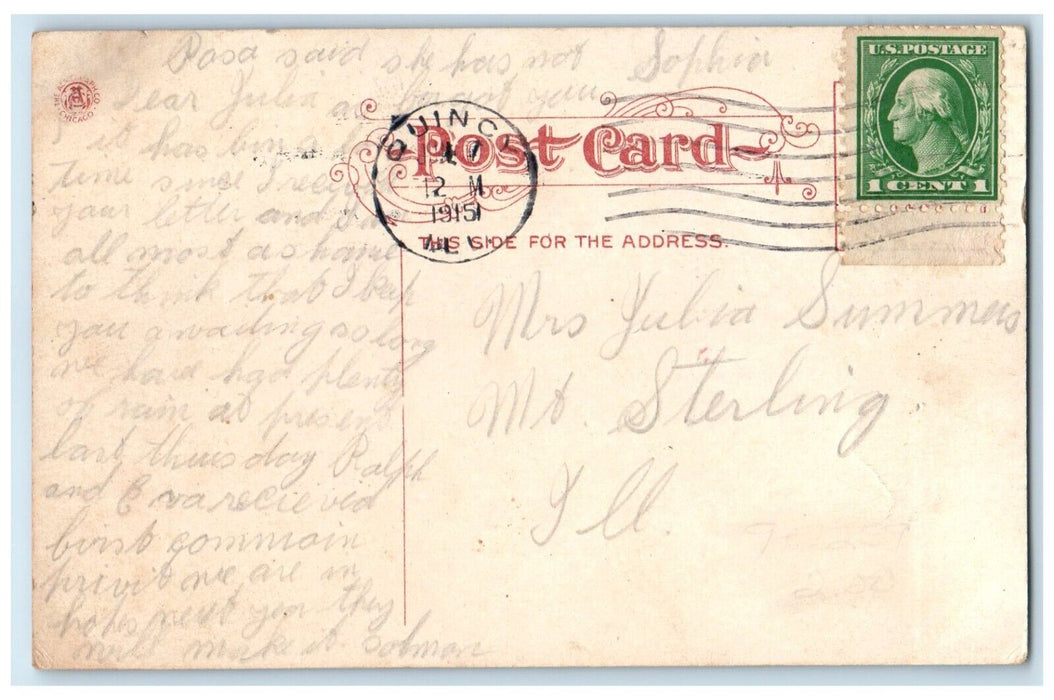 Rosa said she has not Sophia
forgot you
Dear Julia
it has bin a
time since I recei
your letter and I
all most ashame
to think that I keep
you a waiting so long
we have had plenty
of rain at present
last thursday Ralph
and Eva recieved
first commion
privit we are in
hopes next year they
will make it. solman
QUINCY
12 M
1915
ILL
Post Card
THIS SIDE FOR THE ADDRESS.
U.S. POSTAGE
1 CENT 1
Mrs Julia Summers
Mt. Sterling
Ill.
CHICAGO